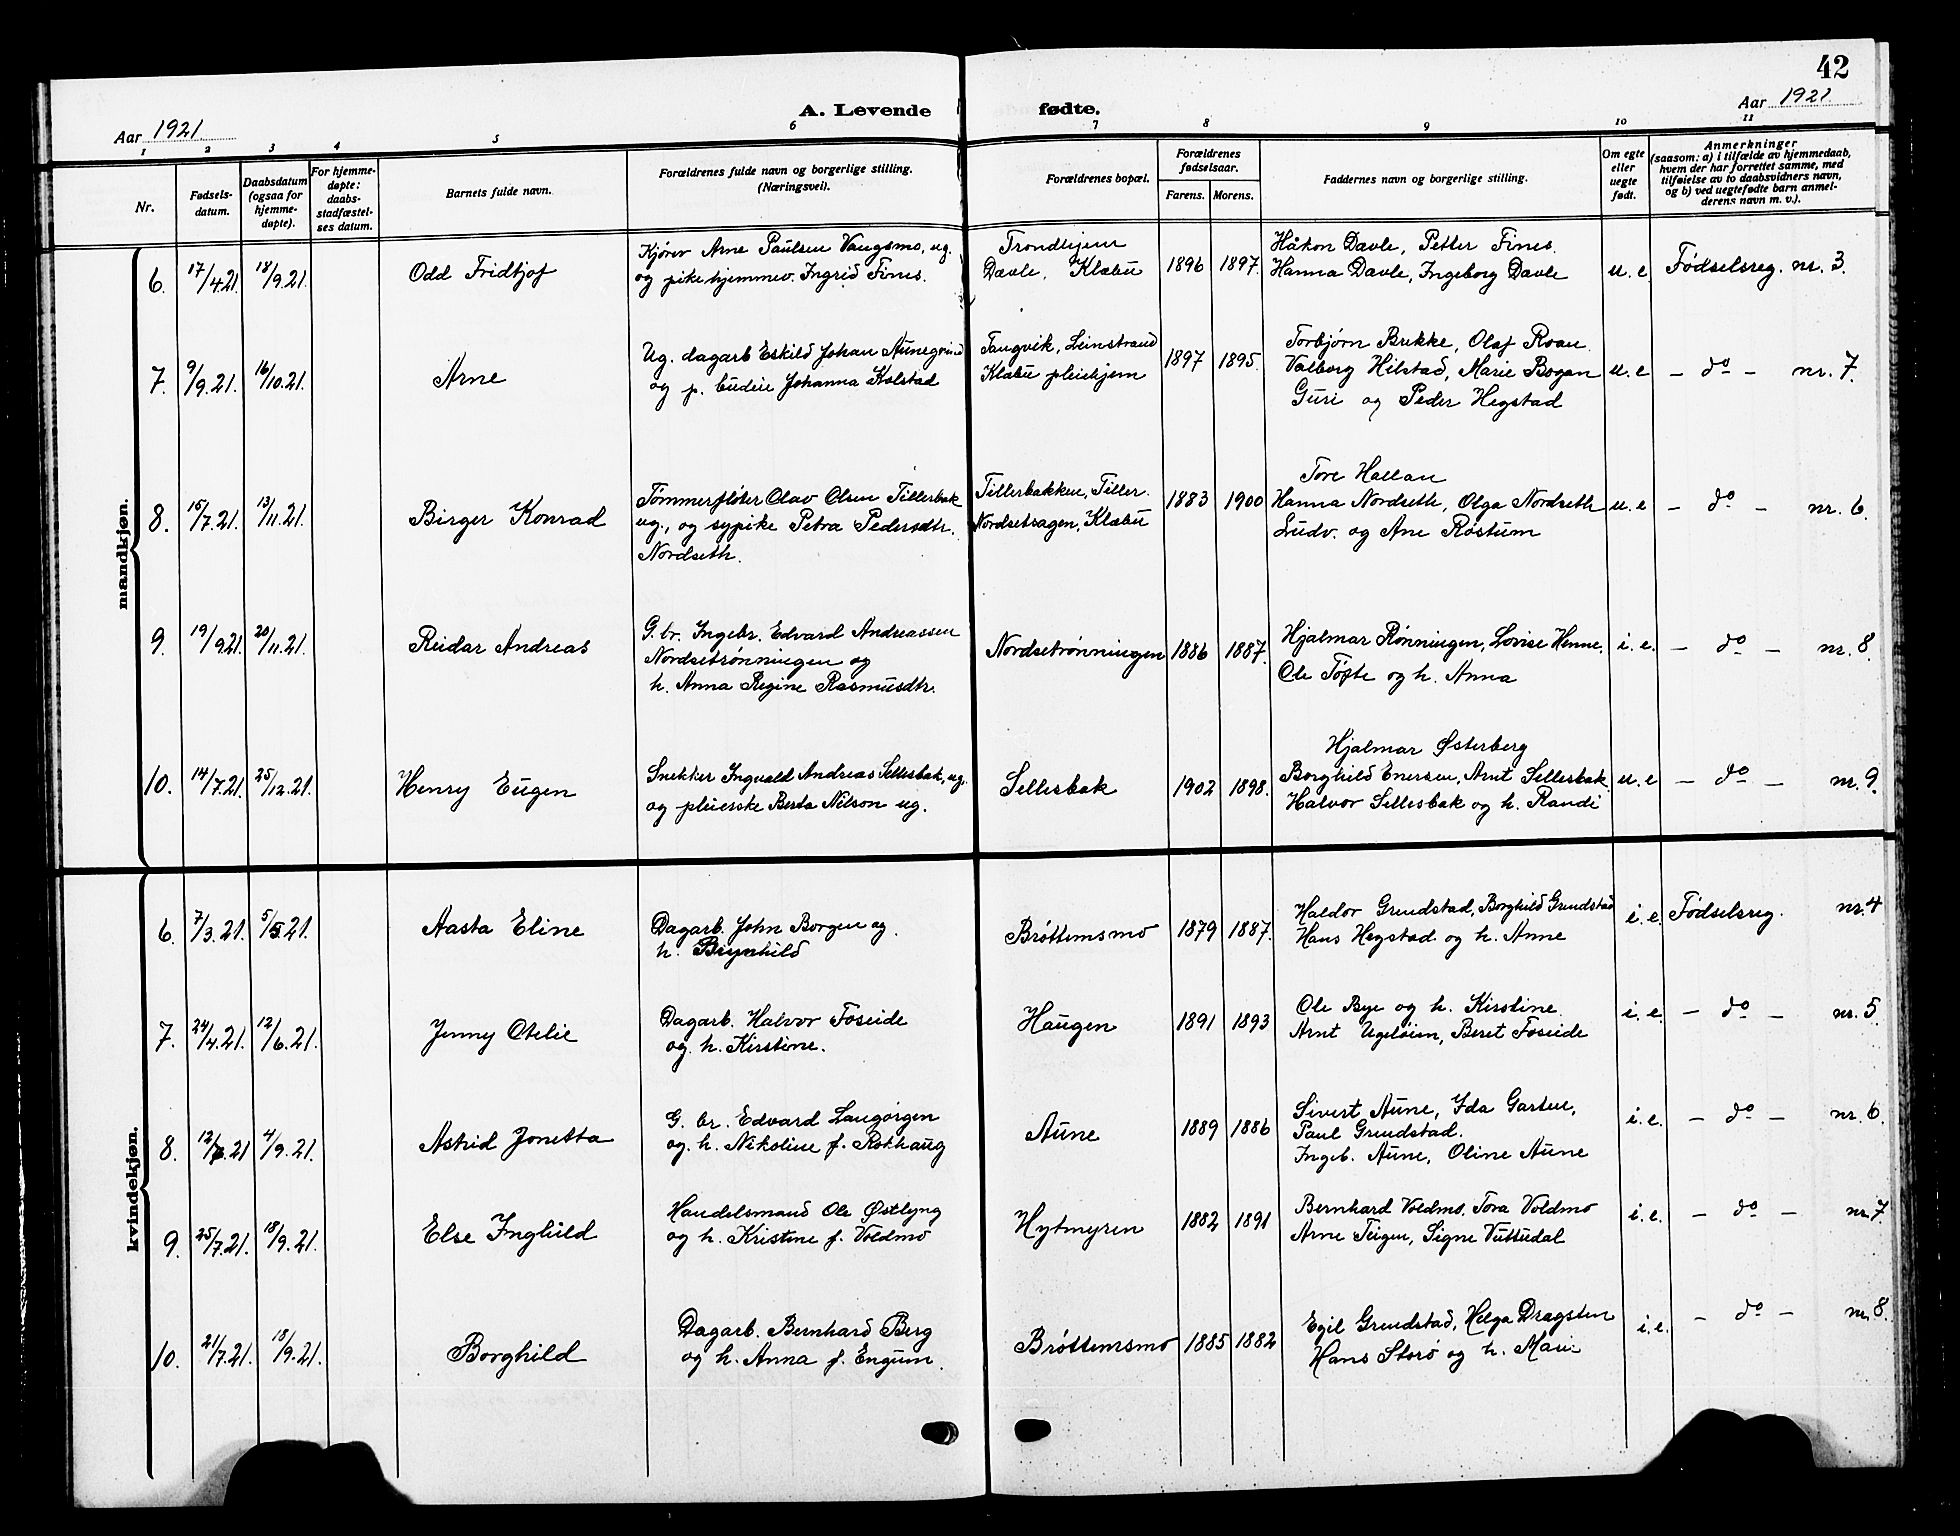 42
A. Levende fødte.
Aar 1921.
Aar 1921
1 2 3 4 5 6 7 8 9 10 11
Nr.
Fødsels-
datum.
Daabsdatum
(ogsaa for
hjemme-
døpte).
For hjemme-
døpte:
daabs-
stadfæstel-
ses datum.
Barnets fulde navn.
Forældrenes fulde navn og borgerlige stilling.
(Næringsvei).
Forældrenes bopæl.
Forældrenes
fødselsaar.
Farens. Morens.
Faddernes navn og borgerlige stilling.
Om egte
eller
uegte
født.
Anmerkninger
(saasom: a) i tilfælde av hjemmedaab,
hvem der har forrettet samme, med
tilføielse av to daabsvidners navn,
og b) ved uegtefødte barn anmel-
derens navn m. v.).
mandkjøn.
6. 17/4.21. 18/9.21.
Odd Fridtjof
Kjører Arne Paulsen Vangsmo, ug.
og pike hjemmev. Ingrid Fines.
Trondhjem
Davle, Klæbu
1896 1897.
Håkon Davle, Petter Fines.
Hanna Davle, Ingeborg Davle
u. e
Fødselsreg. nr. 3.
7. 9/9.21. 16/10.21.
Arne
Ug. dagarb Eskild Johan
og p. budeie Johanna Kolstad
Tangvik, Leinstrand
Klæbu pleiehjem
1897 1895.
Torbjørn Brekke, Olaf Roan
Valborg Hilstad, Marie Bogan
Guri og Peder Hegstad
u. e
— do — nr. 7.
8. 15/7.21. 13/11.21.
Birger Konrad
Tømmerfløter Olav Olsen Tillerbak
ug., og sypike Petra Pedersdtr.
Nordseth.
Tillerbakken, Tiller.
Nordsetsagen, Klæbu
1883 1900
Tore Hallan
Hanna Nordseth, Olga Nordseth
Ludv. og Ane Røstum
u. e
— do — nr. 6.
9. 19/9.21. 20/11.21.
Reidar Andreas
G. br. Ingebr. Edvard Andreassen
Nordsetrønningen og
h. Anna Regine Rasmusdtr.
Nordsetrønningen
1886 1887.
Hjalmar Rønningen, Lovise Henne.
Ole Tøfte og h. Anna
i. e.
— do — nr. 8.
10. 14/7.21. 25/12.21.
Henry Eugen
Snekker Ingvald Andreas Sellesbak, ug.
og pleierske Berta Nilson ug.
Sellesbak
1902 1898.
Hjalmar Østerberg
Borghild Enersen, Arnt Sellesbak
Halvor Sellesbak og h. Randi
u. e
— do — nr. 9.
kvindekjøn.
6. 7/3.21. 5/5.21.
Aasta Eline
Dagarb. John Borgen og.
h. Brynhild
Brøttemsmo
1879 1887.
Haldor Grendstad, Borghild Grendstad
Hans Hegstad og h. Anne
i. e.
Fødselsreg. nr. 4
7. 24/4.21. 12/6.21.
Jenny Otelie
Dagarb. Halvor Foseide
og. h. Kirstine.
Haugen
1891 1893
Ole Bye og h. Kirstine.
Arnt Ugeløien, Beret Foseide
i. e.
— do — nr. 5.
8. 21 4/9.21.
Astrid Jonetta
G. br. Edvard Langørgen
og. h. Nikoline f. Rothaug
Aune
1889 1886
Sivert Aune, Ida Garten,
Paul Grendstad.
Ingeb. Aune, Oline Aune
i. e.
— do — nr. 6.
9. 25/7.21. 18/9.21.
Else Inghild
Handelsmand Ole Østlyng
og h. Kristine f. Voldmo
Hytmyren
1882 1891
Bernhard Voldmo. Tora Voldmo
Arne Teigen, Signe Vuttudal
i. e.
— do — nr. 7.
10. 21/7.21. 18/9.21.
Borghild
Dagarb. Bernhard Berg
og h. Anna f. Engum.
Brøttemsmo
1885 1882
Egil Grendstad, Helga Dragsten
Hans Storø og h. Marie
i. e.
— do — nr. 8.